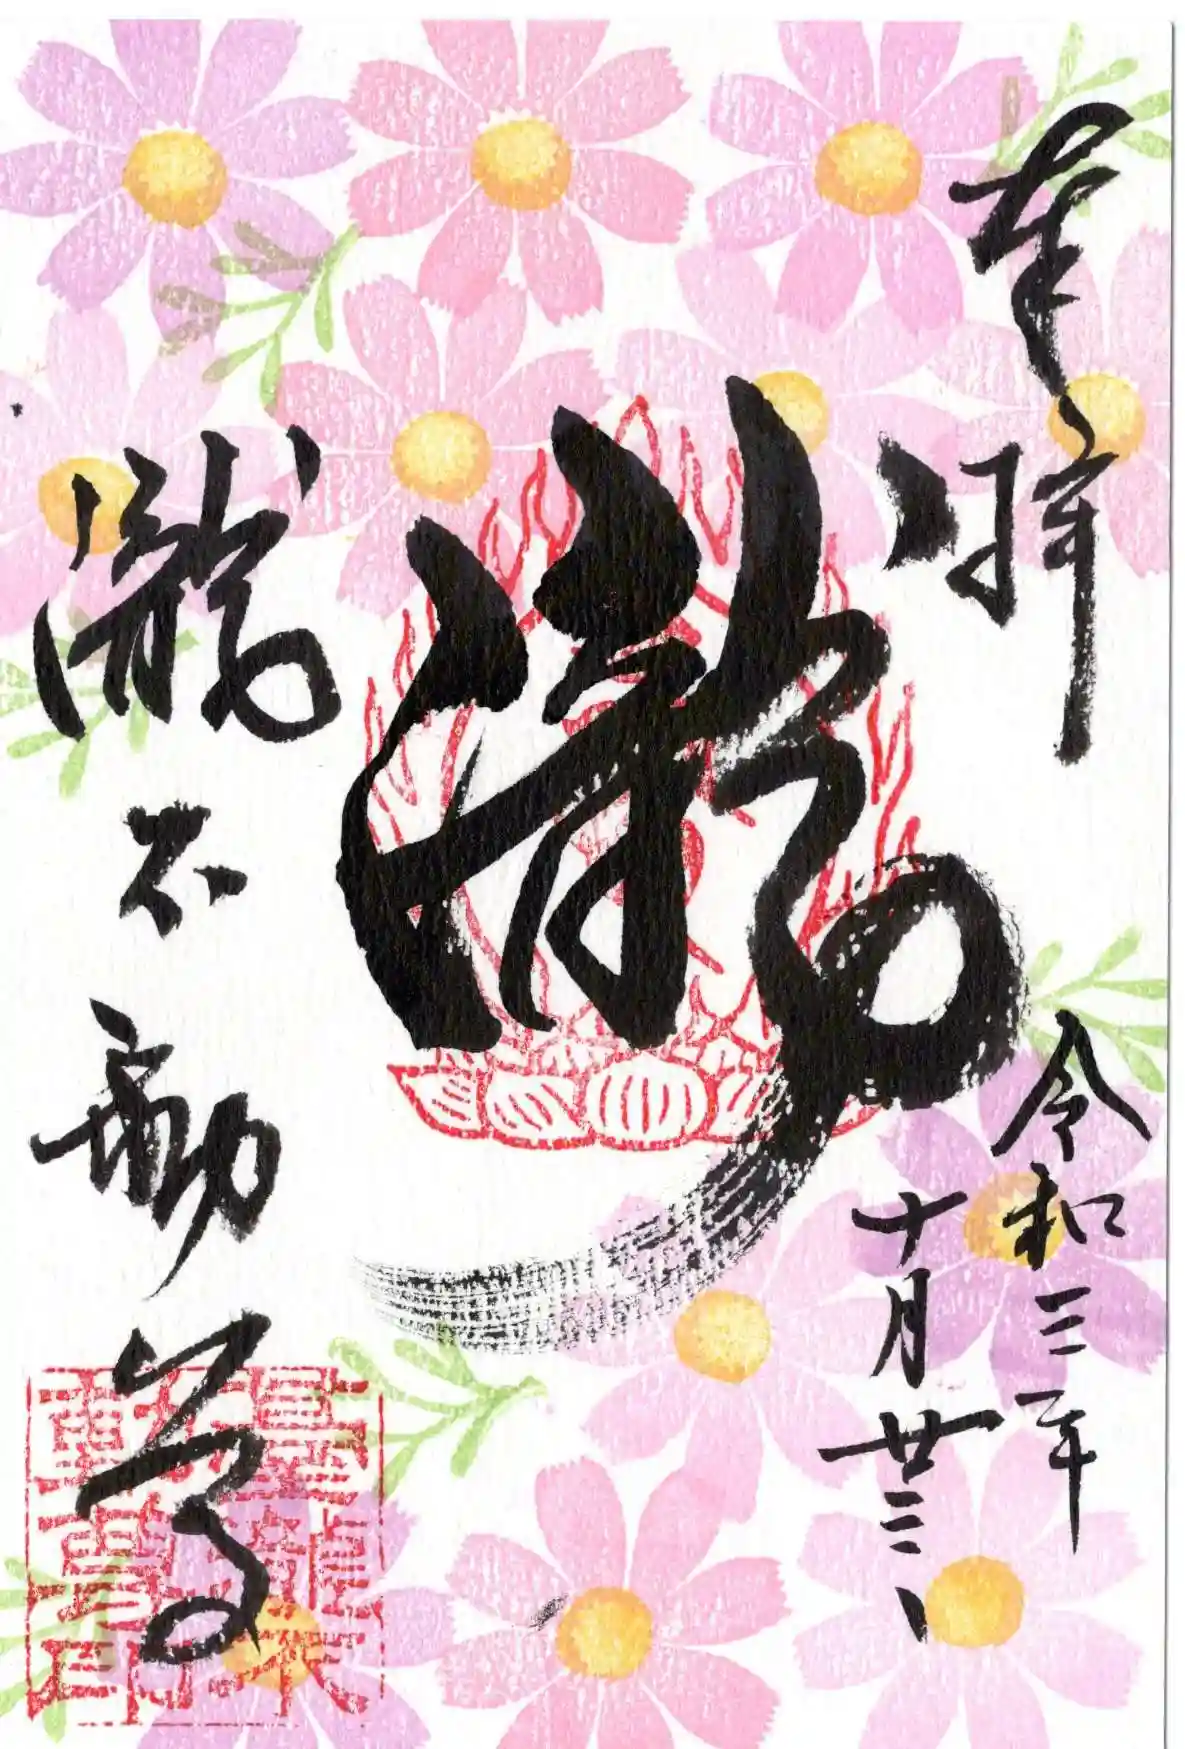 奉拝
令和三年
十月廿三日
瀧
瀧不動尊